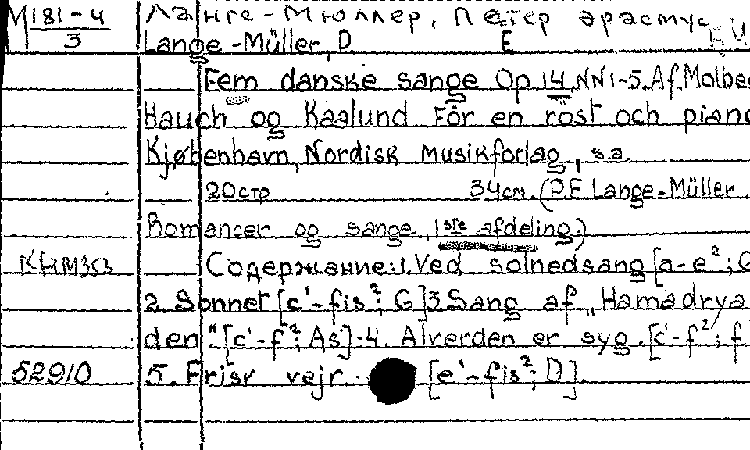 М 181-4/3 Ланге-Мюллер, Петер Эрастус
Lange-Müller, P. E.
Fem danske sange Op 14, NN 1-5. Af Molbe
Hauch og Kaalund För en röst och piano
Kjøbenhavn, Nordisk Musikforlag, s.a.
20 стр 34 см. (P.E Lange-Müller
Romancer og sange, 1ste afdeling.)
Содержание: 1. Ved solnedsang [a-e²; G
2. Sonnet [c'-fis²; G] 3 Sang af „Hamadrya
den" [c'-f²; As] 4. Alverden er syg. [c'-f²; f
52910 5. Frisk vejr. [e'-fis²; D]